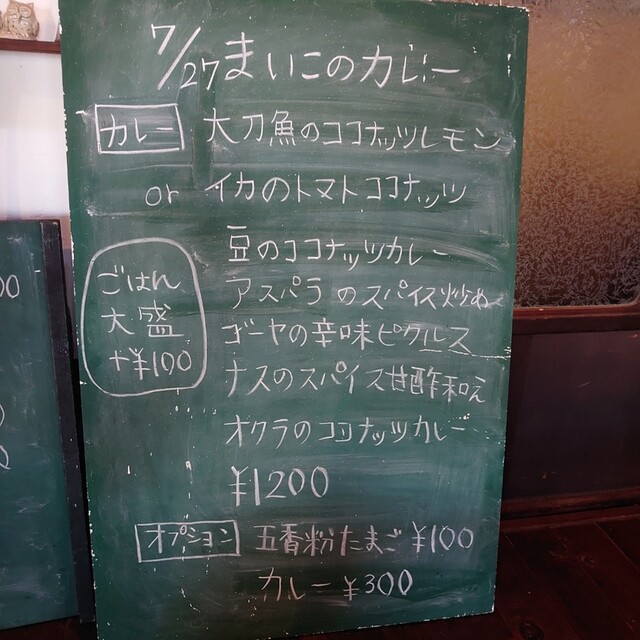 7/27 まいこのカレー
カレー 大刀魚のココナッツレモン
or イカのトマトココナッツ
豆のココナッツカレー
アスパラのスパイス炒め
ゴーヤの辛味ピクルス
ナスのスパイス甘酢和え
オクラのココナッツカレー
¥1200
ごはん
大盛
+¥100
オプション 五香粉たまご ¥100
カレー ¥300